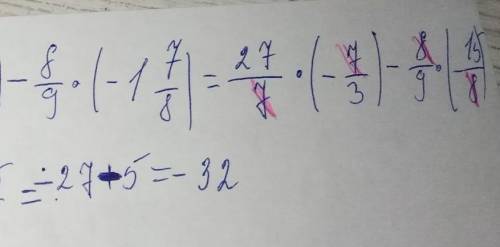 ) - 8/9 · (-1 7/8) = 27/7 · (-7/3) - 8/9 · (15/8
= -27 - 5 = -32